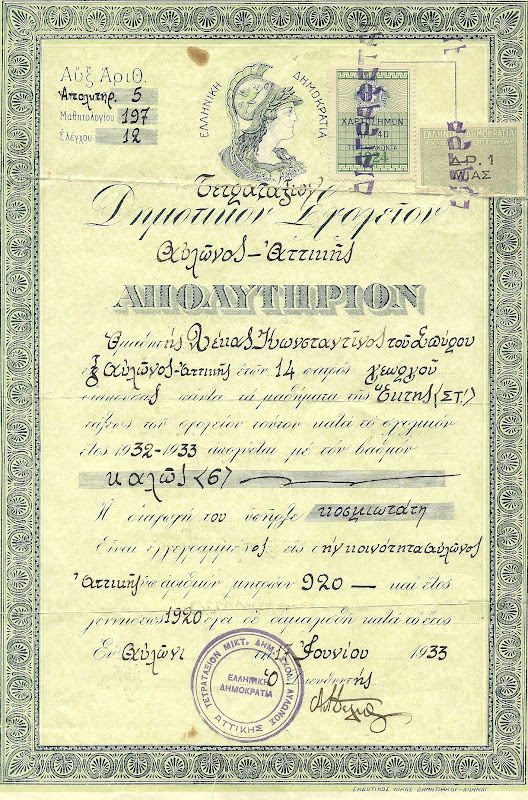 Αὔξ. Ἀριθ.
Ἀπολυτηρ. 5
Μαθητολογίου 197
Ἐλέγχου 12
ΕΛΛΗΝΙΚΗ ΔΗΜΟΚΡΑΤΙΑ
ΧΑΡΤΟΣΗΜΟΝ
40
ΕΛΛΗΝΙΚΗ ΔΗΜΟΚΡΑΤΙΑ
ΔΡ. 1
ΜΙΑΣ
Τετραταξίου
Δημοτικὸν Σχολεῖον
Αὐλῶνος - Ἀττικῆς
ΑΠΟΛΥΤΗΡΙΟΝ
Ὁ μαθητής Λέκας Κωνσταντῖνος τοῦ Σπύρου
ἐξ Αὐλῶνος-Ἀττικῆς ἐτῶν 14 πατρὸς γεωργοῦ
πάντα τὰ μαθήματα τῆς Ἕκτης (ΣΤ')
τάξεως τοῦ σχολείου τούτου κατὰ τὸ σχολικὸν
ἔτος 1932-1933 ἀπολύεται μὲ τὸν βαθμὸν
καλῶς (6)
Ἡ διαγωγή του ὑπῆρξε κοσμιωτάτη
Εἶναι ἐγγεγραμμένος εἰς τὴν κοινότητα Αὐλῶνος
Ἀττικῆς ὑπ' ἀριθμὸν μητρῴου 920 — καὶ ἔτος
γεννήσεως 1920 κατὰ τὸ ἔτος
Ἐν Αὐλῶνι Ἰουνίου 1933
Ὁ Διευθυντής
ΤΕΤΡΑΤΑΞΙΟΝ ΜΙΚΤ. ΔΗΜ. ΣΧΟΛ. ΑΥΛΩΝΟΣ
ΑΤΤΙΚΗΣ
ΕΛΛΗΝΙΚΗ
ΔΗΜΟΚΡΑΤΙΑ
ΕΚΔΟΤΙΚΟΣ ΟΙΚΟΣ ΔΗΜΗΤΡΑΚΟΥ-ΑΘΗΝΑΙ